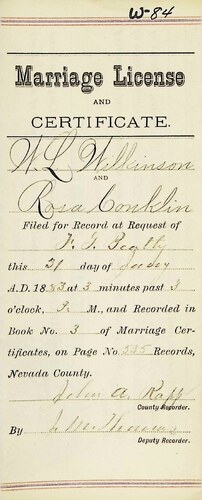 W-84
Marriage License
AND
CERTIFICATE.
W. L. Wilkinson
AND
Rosa Conklin
Filed for Record at Request of
this 31 day of
A.D. 1883 at 3 minutes past 3
o'clock, P. M., and Recorded in
Book No. 3 of Marriage Cer-
tificates, on Page No. 535 Records,
Nevada County.
John A. Rapp
County Recorder.
By
Deputy Recorder.